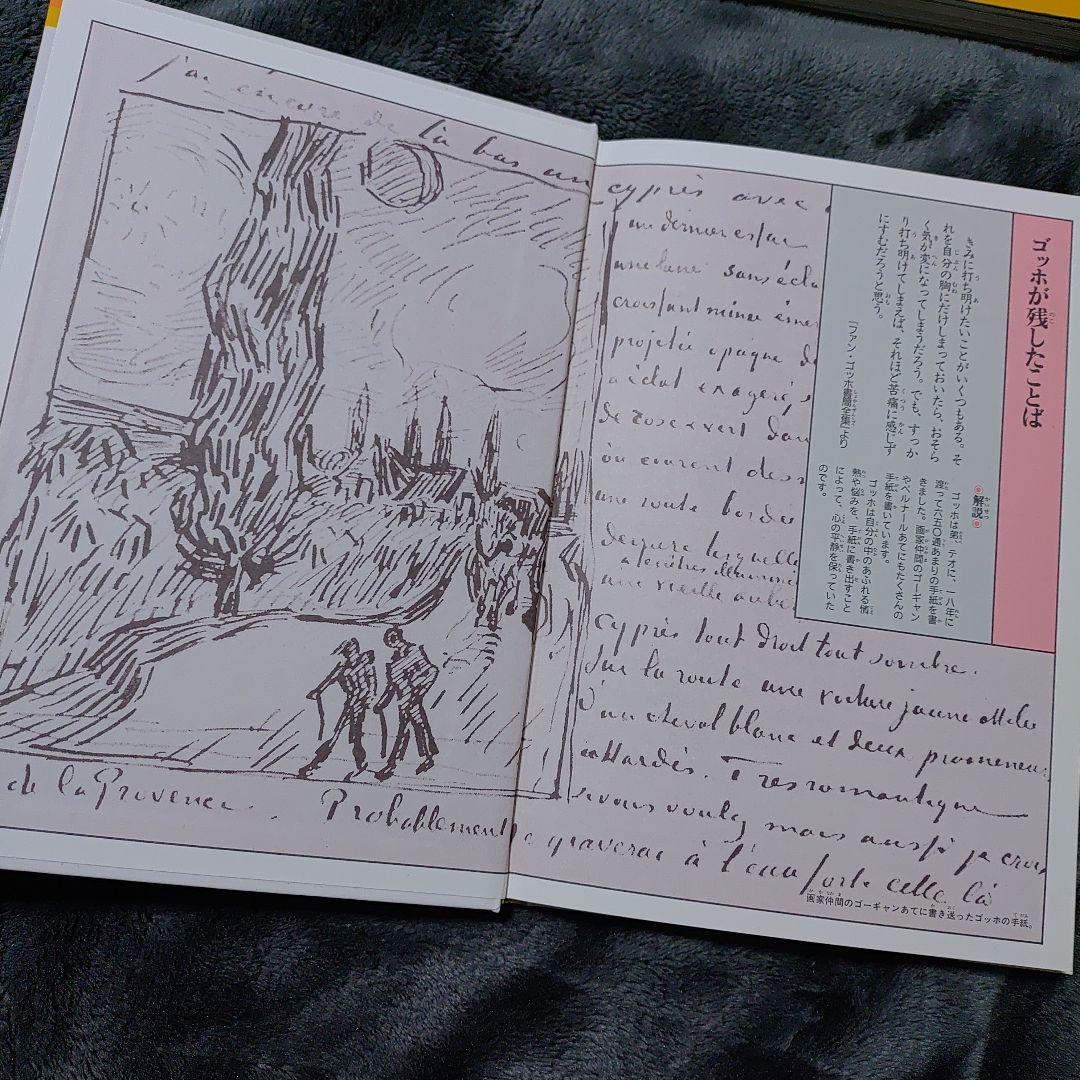 j'ai encore de là bas un cyprès avec
un dernier essai
une lune sans écla
croissant mince émer
projetée opaque de
a éclat exagéré, s
de rose et vert dans
où courent des n
une route bordée
derrière lesquelles
a fenêtres illuminées
une vieille aube
cyprès tout droit tout sombre.
Sur la route une voiture jaune attelée
d'un cheval blanc et deux promeneurs
attardés. Très romantique
si vous voulez mais aussi je crois
de la Provence. Probablement je graverai à l'eau forte celle là
ゴッホが残したことば
きみに打ち明けたいことがいくつもある。そ
れを自分の胸にだけしまっておいたら、おそら
く気が変になってしまうだろう。でも、すっか
り打ち明けてしまえば、それほど苦痛に感じず
にすむだろうと思う。
『ファン・ゴッホ書簡全集』より
解説
ゴッホは弟、テオに、一八年に
渡って六五〇通あまりの手紙を書
きました。画家仲間のゴーギャン
やベルナールあてにもたくさんの
手紙を書いています。
ゴッホは自分の中のあふれる情
熱や悩みを、手紙に書き出すこと
によって、心の平静を保っていた
のです。
画家仲間のゴーギャンあてに書き送ったゴッホの手紙。